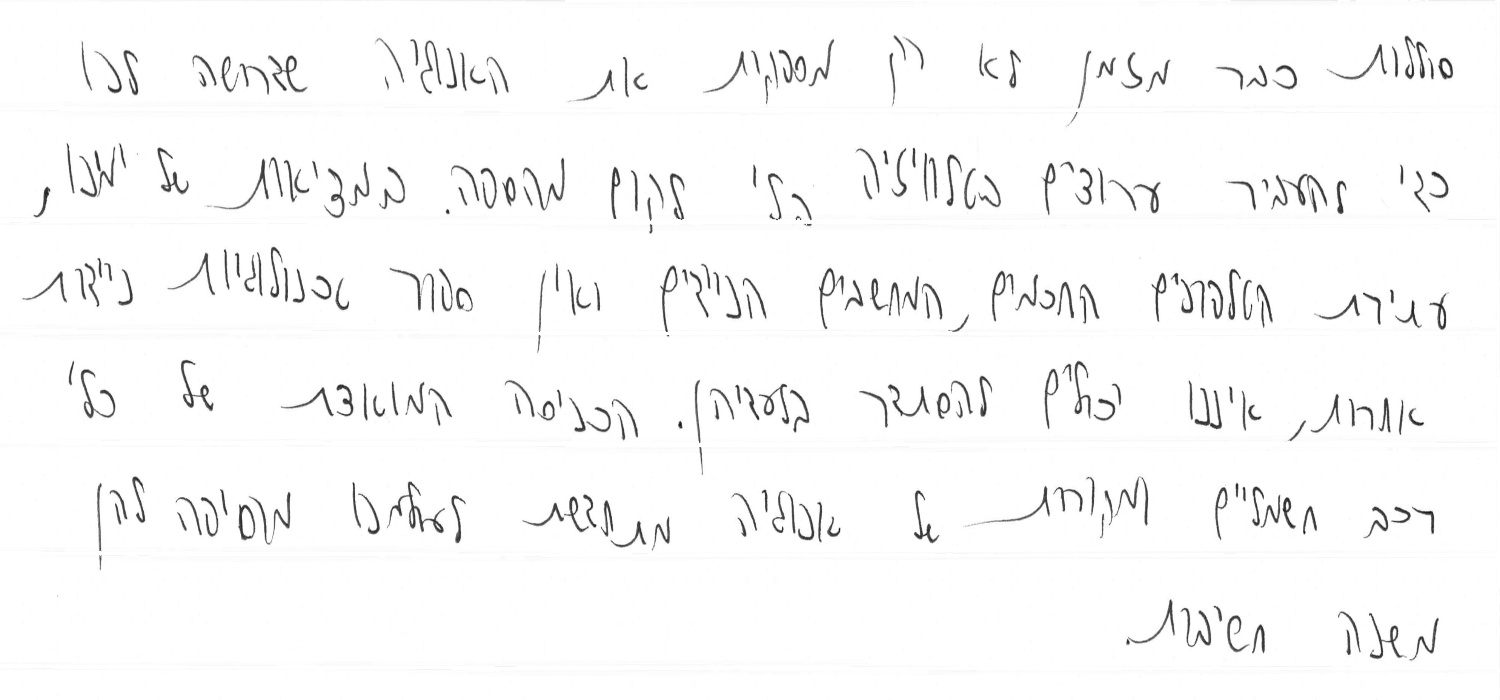 סוללות כבר מזמן לא רק מספקות את האנרגיה שדרושה לנו
כדי להעביר ערוצים בטלוויזיה בלי לקום מהספה. במציאות של ימינו,
עתירת הטלפונים החכמים, המחשבים הניידים ואין ספור טכנולוגיות ניידות
אחרות, איננו יכולים להסתדר בלעדיהן. הכניסה המואצת של כלי
רכב חשמליים ומקורות של אנרגיה מתחדשת לעולמנו מוסיפה להן
משנה חשיבות.